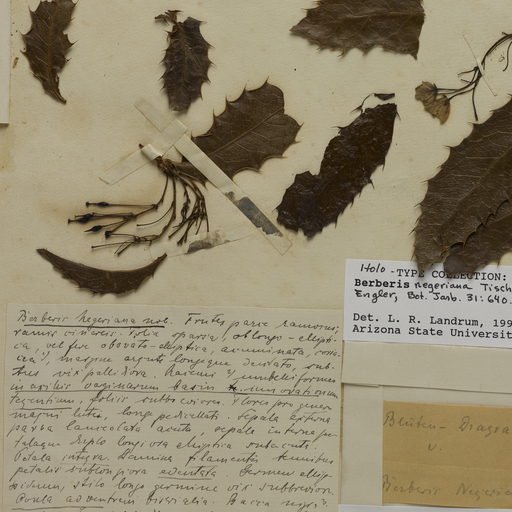 Holo -TYPE COLLECTION:
Berberis negeriana Tisch
Engler, Bot. Janb. 31: 640.
Det. L. R. Landrum, 199
Arizona State Universit
Berberis Negeriana nob. Frutex parce ramosus,
ramis cinereis. Folia sparsa, oblongo-ellipti-
ca, vel fere obovato-elliptica, acuminata, coria-
cea, margine argute longeque dentato, sub-
tus vix pallidiora. Racemi umbelliformes
in axilis vaginarum basin
tegentium, foliis subbreviores. Flores pro genere
magni lutei, longe pedicellati. Sepala externa
parva lanceolata acuta, sepala interna pe-
talaque duplo longiora elliptica subacuta.
Petala integra. Stamina filamentis tenuibus
petalis sublongiora edentata. Germen ellip-
soideum, stilo longo germine vix subbreviore.
Ovula ad ventrem Bacca nigri
Blüten-Diagra
v.
Berberis Negeria